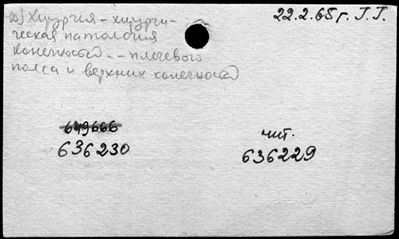 д) Хирургия - хирурги-
ческая патология
конечностей - плечевого
пояса и верхних конечностей
22.2.65 г. Т.Т.
649666
636230
чит.
636229